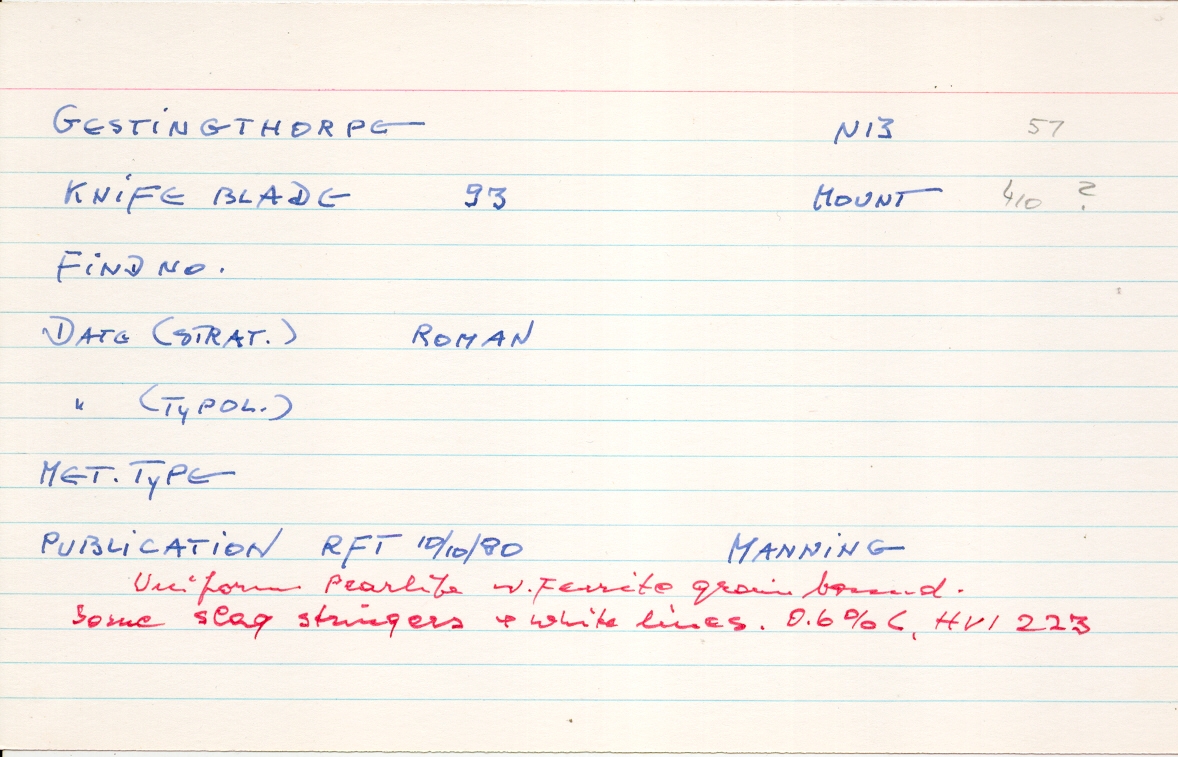 GESTINGTHORPE N13 57
KNIFE BLADE 93 MOUNT 410 ?
FIND NO.
DATE (STRAT.) ROMAN
" (TYPOL.)
MET. TYPE
PUBLICATION RFT 10/10/80 MANNING
Uniform Pearlite w. Ferrite grain bound.
Some slag stringers + white lines. 0.6%C, HV1 223